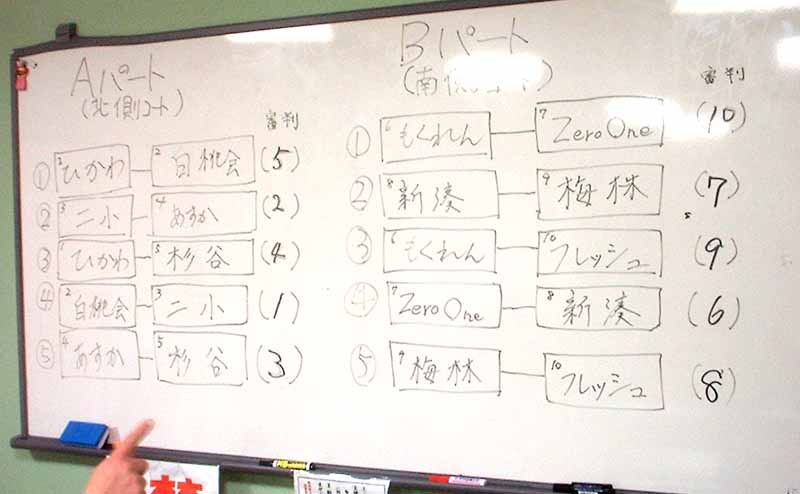 Aパート
(北側コート)
審判
① 1 ひかわ 2 白桃会 (5)
② 3 二小 4 あすか (2)
③ 1 ひかわ 5 杉谷 (4)
④ 2 白桃会 3 二小 (1)
⑤ 4 あすか 5 杉谷 (3)
Bパート
(南側コート)
審判
① 6 もくれん 7 ZeroOne (10)
② 8 新湊 9 梅林 (7)
③ 6 もくれん 10 フレッシュ (9)
④ 7 ZeroOne 8 新湊 (6)
⑤ 9 梅林 10 フレッシュ (8)